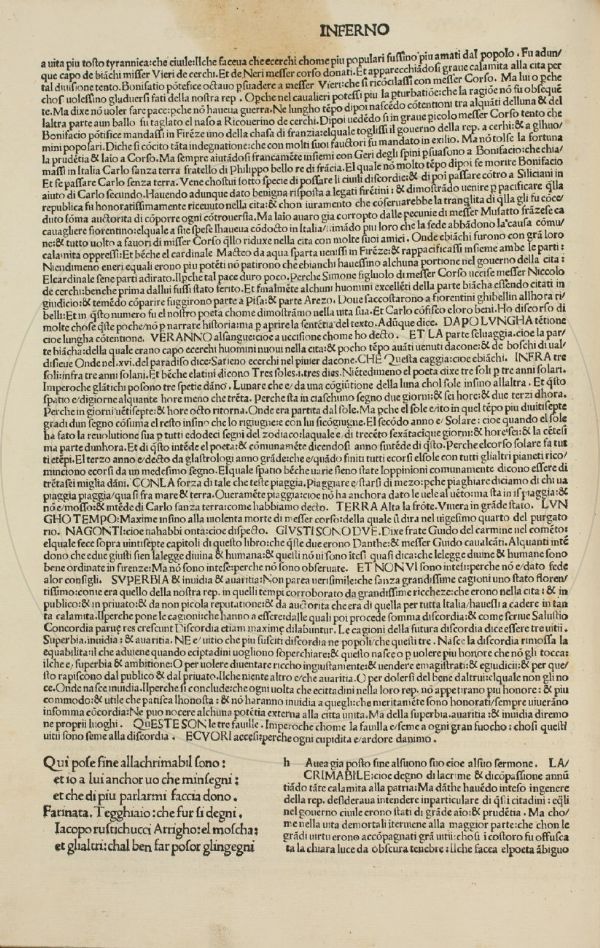 INFERNO
a uita piu tosto tyrannica:che ciuile:Ilche faceua che ecerchi chome piu populari fussino piu amati dal popolo. Fu adun/
que capo de biãchi misser Vieri de cerchi. Et de Neri messer corso donati. Et apparecchiãdosi graue calamita alla cita per
tal diuisione tento. Bonifatio põtefice octauo psuadere a messer Vieri:che si ricõciliassi con messer Corso. Ma lui o pche
chosi uolessino gluduersi fati della nostra rep. Opche ne caualieri potessi piu la pturbatiõe:che la ragiõe nõ fu obseque
te. Ma dixe nõ uoler fare pace:pche nõ haueua guerra. Ne lungho tẽpo dipoi nascẽdo cõtentioni tra alquãti delluna & del
laltra parte in un ballo fu tagliato el naso a Ricouerino de cerchi. Dipoi uedẽdo si in graue picolo messer Corso tento che
Bonifacio põtifice mandassi in Firẽze uno della chasa di franzia:elquale toglissi il gouerno della rep. a cerhi:& a glihuo/
mini popolari. Di che si cõcito tãta indegnatione:che con molti suoi fauctori fu mandato in exilio. Ma nõ tolse la fortuna
la prudẽtia & laio a Corso. Ma sempre aiutãdosi francamẽte insiemi con Geri degli spini psuasono a Bonifacio:che chia/
massi in Italia Carlo sanza terra fratello di Philippo bello re di frãcia. El quale nõ molto tẽpo dipoi se morire Bonifacio
Et fe passare Carlo senza terra. Vene chostui sotto specie di possare li ciuili discordie:& di poi passare cõtro a Siciliani in
aiuto di Carlo secundo. Hauendo adunque dato benigna risposta a legati firẽtini : & dimostrãdo uenire p pacificare qlla
republica fu honoratissimamente riceuuto nella cita:& chon iuramento che cõseruarebbe la tranqlita di qlla gli fu cõce/
duto sõma auctorita di cõporre ogni cõtrouersia. Ma laio auaro gia corropto dalle pecunie di messer Musatto frãzese ca
ne:& tutto uolto a fauori di messer Corso qllo riduxe nella cita con molte suoi amici. Onde ebiãchi furono con grã loro
calamita oppressi: Et bẽche el cardinale Macteo da aqua sparta uenissi in Firẽze:& rappacificassi insieme ambe le parti:
Niendimeno eneri equali erono piu potẽti nõ patirono che ebianchi hauessino alchuna portione nel gouerno della cita:
El cardinale sene parti adirato. Ilpche tal pace duro poco. Perche Simone figliuolo di messer Corso uccise messer Niccolo
de cerchi:benche prima dallui fussi stato ferito. Et finalmẽte alchuni huomini excellẽti della parte biãcha essendo citati in
giudicio:& temẽdo cõparire fuggirono parte a Pisa:& parte Arezo. Doue saccostarono a fiorentini ghibellin allhora ri/
belli:Et in qsto numero fu el nostro poeta chome dimostrãmo nella uita sua. Et Carlo cõfisco eloro beni. Ho discorso di
molte chose qste poche/nõ p narrare historia:ma p aprire la sentẽtia del texto. Adũque dice. DAPOLVNGHA tẽtione
cioe lungha cõtentione. VERANNO alsangue:cioe a uccisione chome ho decto. ET LA parte seluaggia.cioe la par/
te biãcha:della quale erano capo ecerchi huomini nuoui nella cita:& pocho tẽpo auãti uenuti dacone:& de boschi di ual/
disieue Onde nel.xvi.del paradiso dice/Sarieno ecerchi nel piuier dacone. CHE Questa caggia:cioe ebiãchi. INFRA tre
soli:infra tre anni solani. Et bẽche elatini dicono Tres soles.i.tres dies. Niẽtedimeno el poeta dixe tre soli p tre anni solari.
Imperoche glãtichi posono tre spetie dãno. Lunare che e/da una cõgiũtione della luna chol sole insino allaltra. Et qsto
spatio e/digiorne alquante hore meno che trẽta. Perche sta in ciaschuno segno due giorni:& sei hore:& due terzi dhora.
Perche in giorni uẽtisepte:& hore octo ritorna. Onde era partita dal sole. Ma pche el sole e/ito in quel tẽpo piu diuitisepte
gradi dun segno cõsuma el resto insino che lo rigiugne:e con lui sicõgiugne. El secõdo anno e/ Solare : cioe quando el sole
ha fato la reuolutione sua p tutti edodeci segni del zodiaco:laquale e. di trecẽto sexãtacinque giorni:& hore sei:& la cẽtesi
ma parte dunhora. Et di qsto intẽde el poeta:& cõmunamẽte dicendosi anno sintẽde di qsto. Perche elcorso solare fa tut
ti etẽpi. El terzo anno e/decto da glastrologi anno grãde:che e/quãdo finiti tutti ecorsi elsole con tutti glialtri pianeti rico/
minciono ecorsi da un medesimo segno. Elquale spatio bẽche uarie sieno state loppinioni comunamente dicono essere di
trẽtasei miglia dãni. CONLA forza di tale che teste piaggia. Piaggiare e/starsi di mezo:pche piaghiare diciamo di chi ua
piaggia piaggia/qua si fra mare & terra. Oueramẽte piaggia:cioe nõ ha anchora dato le uele al uẽto:ma sta in is piaggia:&
nõ e/mosso:& intẽde di Carlo sanza terra:come habbiamo decto. TERRA Alta la frõte. Viuera in grãde stato. LVN
GHO TEMPO:Maxime insino alla uiolenta morte di messer corso:della quale si dira nel uigesimo quarto del purgato
rio. NAGONTI:cioe nahabbi onta:cioe dispecto. GIVSTI SONO DVE. Dixe frate Guido del carmine nel comẽto:
elquale fece sopra uintisepte capitoli di questo libro:che qste due erono Danthe:& messer Guido caualcãti. Alquanti intẽ
dono che e due giusti sien la legge diuina & humana:& quelli nõ ui sono ĩtesi quasi dica:che le legge diuine & humane sono
bene ordinate in firenze:Ma nõ sono intese:perche nõ sono obseruate. ET NON VI sono intesi:perche nõ e/dato fede
alor consigli. SVPERBIA & inuidia & auaritia:Non parea uerisimile:che sanza grandissime cagioni uno stato floren/
tissimo:come era quello della nostra rep. in quelli tempi corroborato da grandissime riccheze:che erono nella cita : & in
publico:& in priuato:& da non picola reputatione:& da auctorita che era di quella per tutta Italia/hauessi a cadere in tan
ta calamita. Ilperche pone le cagioni:che hanno a essere:dalle quali poi procede somma discordia:& come scriue Salustio
Concordia paruę res crescunt Discordia etiam maxime dilabuntur. Le cagioni della futura discordia dice essere tre uitii.
Superbia:inuidia: & auaritia. NE e/uitio che piu susciti discordie ne popoli:che questi tre. Nasce la discordia rimossa la
equabilita:il che aduiene quando eciptadini uogliono soperchiare:& questo nasce o p uolere piu honore che nõ gli tocca:
ilche e/ superbia & ambitione:O per uolere diuentare riccho ingiustamente:& uendere emagistrati:& egiudicii:& per que/
sto rapiscono dal publico & dal priuato. Ilche niente altro e/che auaritia. O per dolersi del bene daltrui:elquale non gli no
ce. Onde nasce inuidia. Ilperche si conclude:che ogni uolta che ecittadini nella loro rep. nõ appetirano piu honore : & piu
commodo:& utile che patisca lhonesta : & nõ haranno inuidia a quegli:che meritamẽte sono honorati/sempre uiuerano
insomma cõcordia:Ne puo nocere alchuna potẽtia externa alla citta unita. Ma della superbia.auaritia : & inuidia diremo
ne proprii luoghi. QVESTE SON le tre fauille. Imperoche chome la fauilla e/seme a ogni gran fuocho : chosi questi
uitii sono seme alla discordia . E CVORI accesi:perche ogni cupidita e/ardore danimo.
Qui pose fine allachrimabil sono :
et io a lui anchor uo che minsegni :
et che di piu parlarmi faccia dono.
Farinata. Tegghiaio :che fur si degni .
Iacopo rustichucci Arrigho:el moscha:
et glialtri:chal ben far posor glingegni
h Auea posto fine alsuono suo cioe alsuo sermone. LA/
CRIMABILE:cioe degno di lacrime & dicõpassione annũ
tiãdo tãte calamita alla patria:Ma dãthe hauẽdo inteso in genere
della rep. desideraua intendere inparticulare di qsti citadini: eqli
nel gouerno ciuile erono stati di grãde aĩo:& prudẽtia. Ma cho/
me nella uita demortali iteruene alla maggior parte:che chon le
grãdi uirtu erono accõpagnati grã uitii:chosi i costoro fu offusca
ta la chiara luce da obscura tenebre : Ilche facea elpoeta ãbiguo